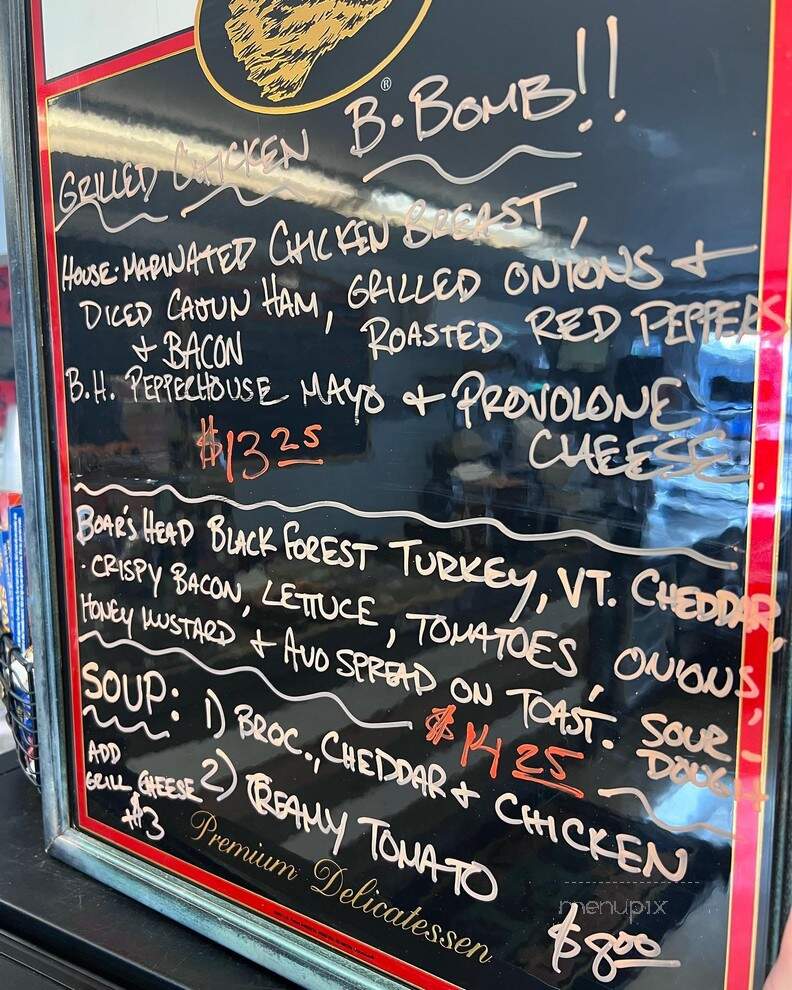 ®
GRILLED CHICKEN B.BOMB!!
HOUSE-MARINATED CHICKEN BREAST,
DICED CAJUN HAM, GRILLED ONIONS +
+ BACON ROASTED RED PEPPERS
B.H. PEPPERHOUSE MAYO + PROVOLONE
CHEESE
$13 25
BOAR'S HEAD BLACK FOREST TURKEY, VT. CHEDDAR,
· CRISPY BACON, LETTUCE, TOMATOES, ONIONS,
HONEY MUSTARD + AVO SPREAD ON TOAST. SOUR-
DOUGH
$14 25
SOUP: 1) BROC., CHEDDAR + CHICKEN
ADD
GRILL CHEESE 2) CREAMY TOMATO
$3
$8 00
Premium Delicatessen
menupix